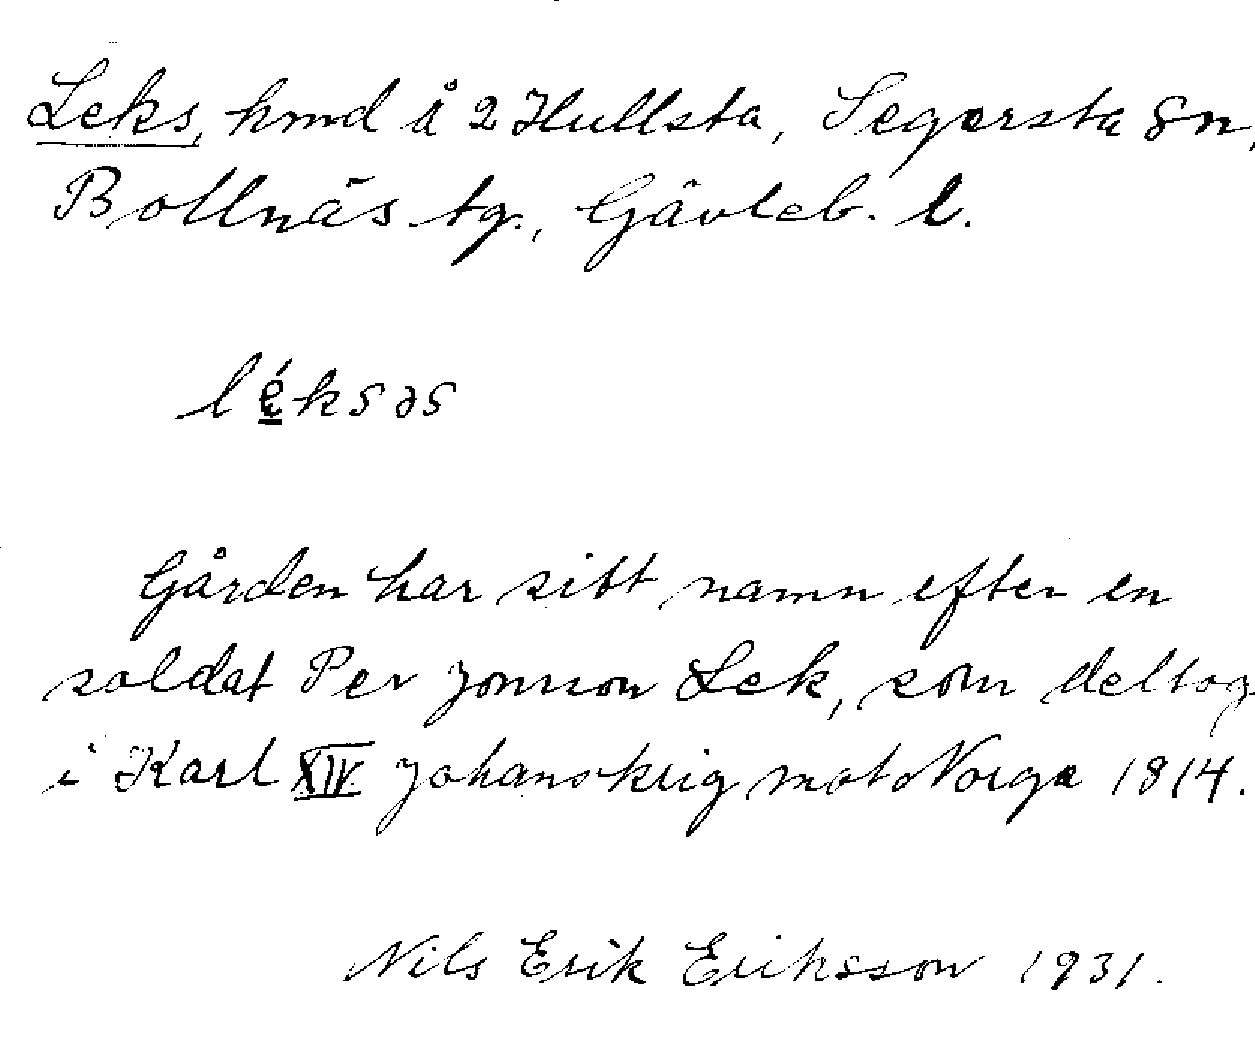 Leks, hmd å 2 Hullsta, Segersta sn,
Bollnäs tg., Gävleb. l.
léksəs
Gården har sitt namn efter en
soldat Per Jonson Lek, som deltog
i Karl XIV Johans krig mot Norge 1814.
Nils Erik Eriksson 1931.